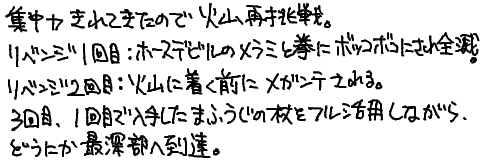 集中力きれてきたので火山再挑戦。
リベンジ1回目:ホースデビルのメラミと拳にボッコボコにされ全滅。
リベンジ2回目:火山に着く前にメガンテされる。
3回目、1回目で入手したまふうじの杖をフル活用しながら、
どうにか最深部へ到達。